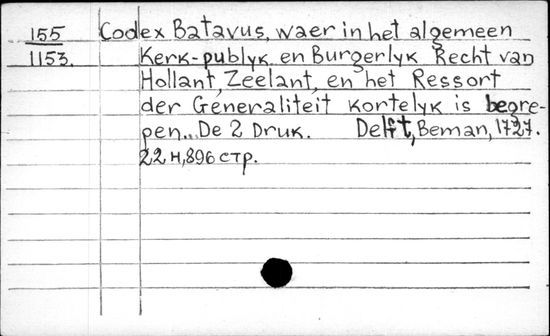 155 Codex Batavus, waer in het algemeen
1153. Kerk-publyk en Burgerlyk Recht van
Hollant, Zeelant, en het Ressort
der Generaliteit kortelyk is begre-
pen... De 2 Druk. Delft, Beman, 1727.
22 н, 896 стр.